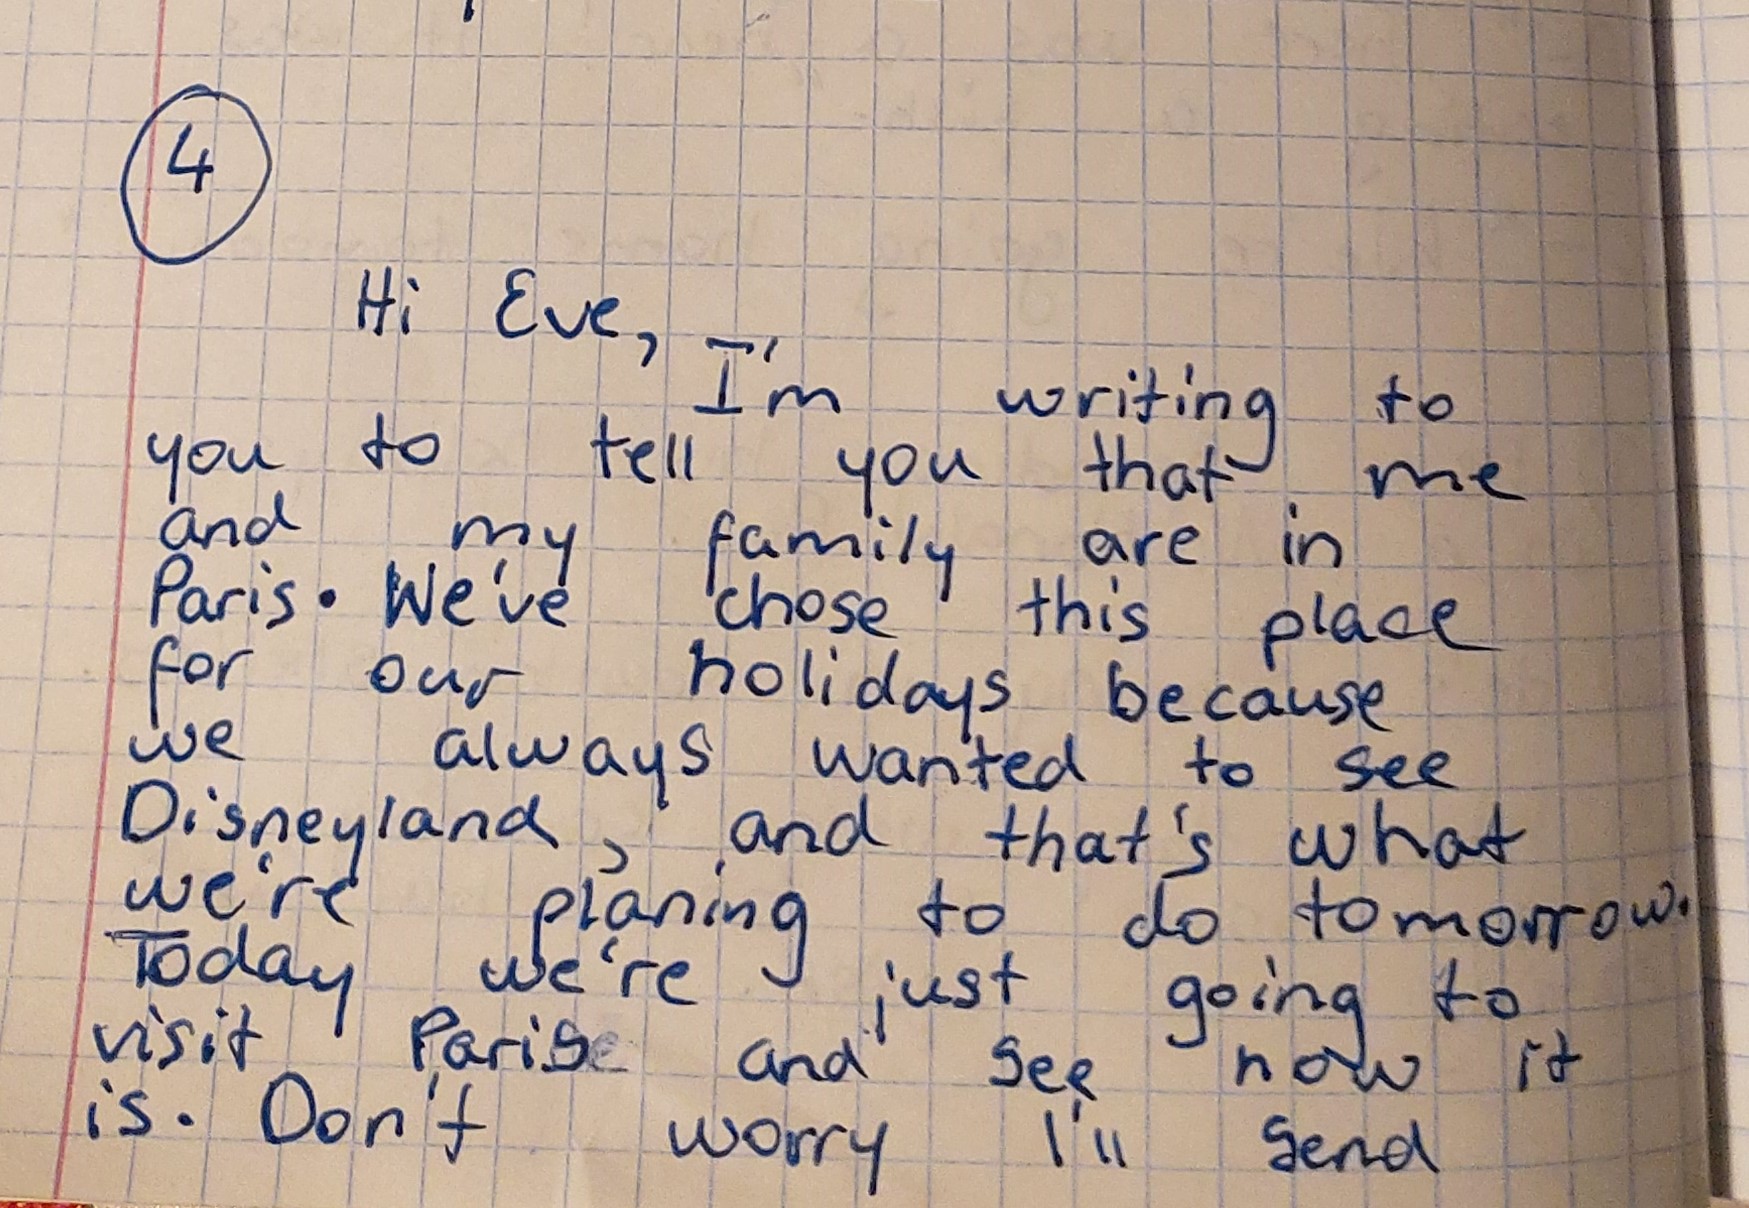 4
Hi Eve,
I'm writing to
you to tell you that me
and my family are in
Paris. We've chose this place
for our holidays because
we always wanted to see
Disneyland, and that's what
we're planing to do tomorrow.
Today we're just going to
visit Paris and see how it
is. Don't worry I'll send